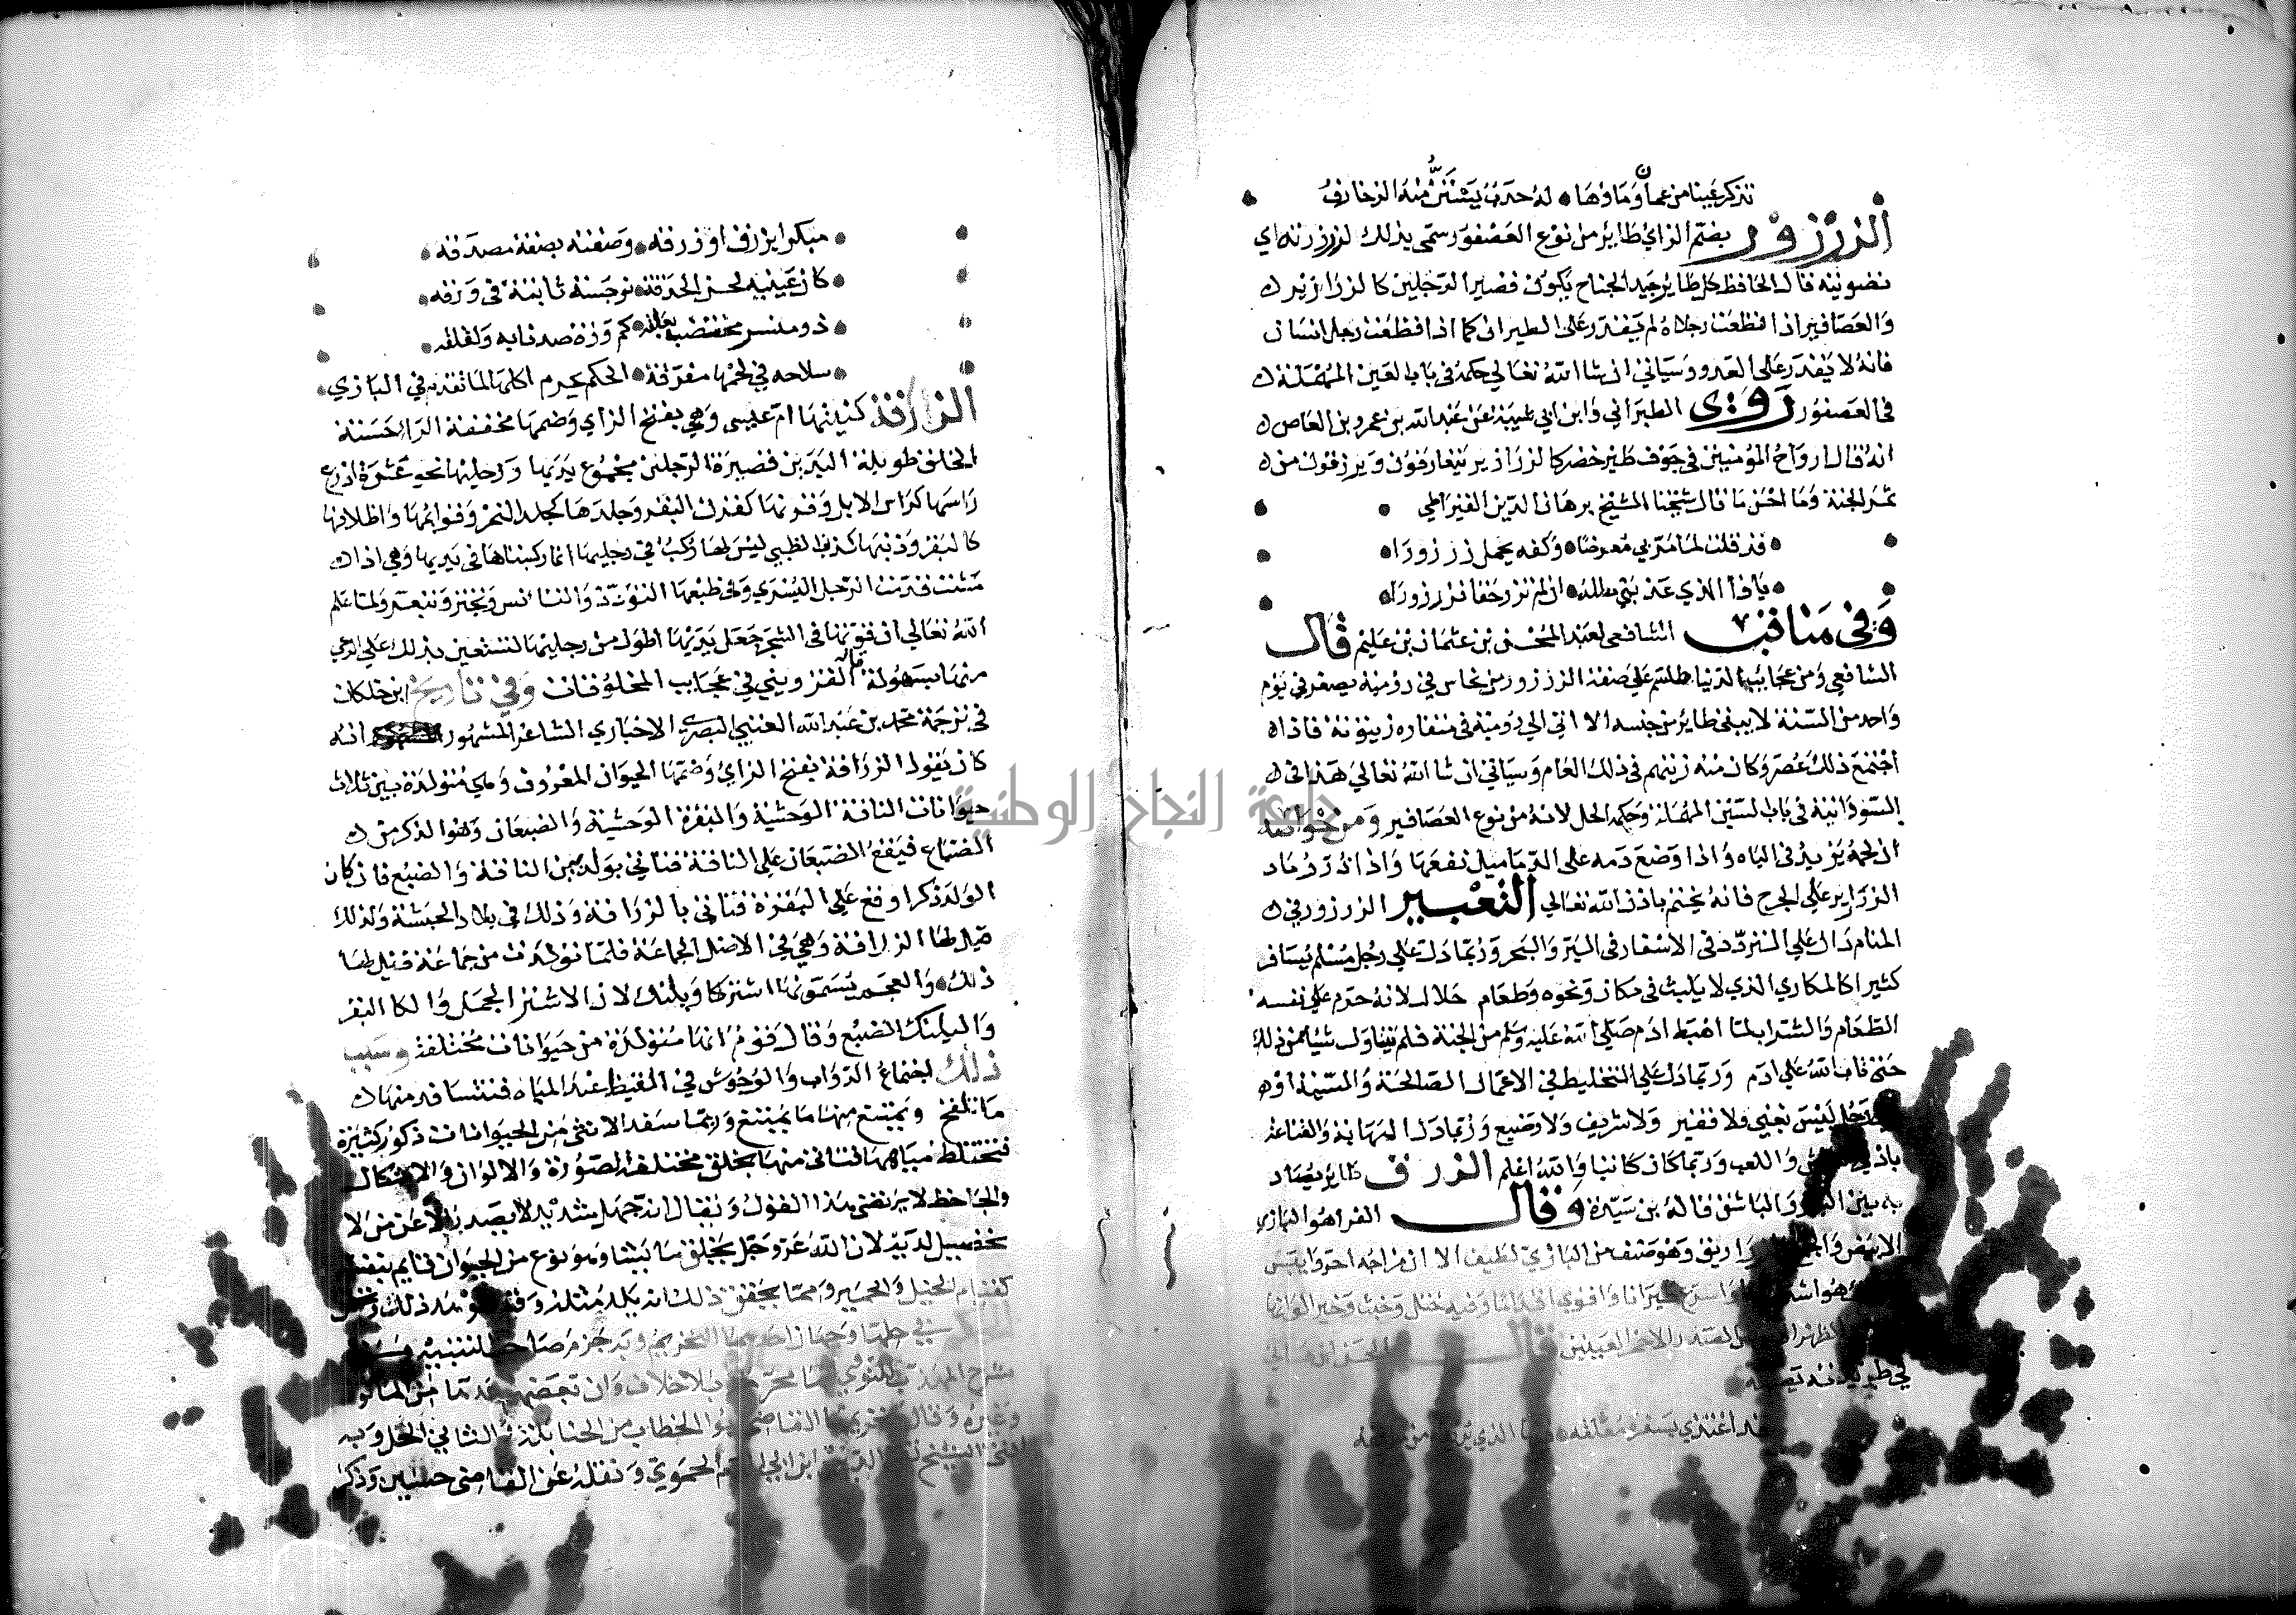 تذكر عينا من عمان وماؤها له حدب يشتن منه الزخارف
الزرزور بضم الزاي طاير من نوع العصفور سمي بذلك لزرزرته اي
تصويته قال الجاحظ كل طاير جيد الجناح يكون قصير الرجلين كالزرازير
والعصافير اذا قطعت رجلاه لم يقدر على الطيران كما اذا قطعت رجل انسان
فانه لا يقدر على العدو وسياتي ان شا الله تعالي حكمه في باب العين المهملة
في العصفور روي الطبراني وابن ابي شيبة عن عبد الله بن عمرو بن العاص
انه قال ارواح المومنين في جوف طير خضر كالزرازير يتعارفون ويرزقون من
ثمر الجنة وما احسن ما قال شيخنا الشيخ برهان الدين القيراطي
قد قلت لما مر بي معرضا وكفه يحمل زرزورا
يا ذا الذي عذبني مطله ان لم تزر حقا فزر زورا
وفي مناقب الشافعي لعبد المحسن بن عثمان بن غانم قال
الشافعي ومن عجايب الدنيا طلسم علي صفة الزرزور من نحاس في رومية يصفر في يوم
واحد من السنة لا يبقى طاير من جنسه الا اتي الي رومية في منقاره زيتونة فاذا
اجتمع ذلك عصر وكان منه زيتهم في ذلك العام وسياتي ان شا الله تعالي هذا في
السودانية في باب السين المهملة وحكمه الحل لانه من نوع العصافير ومن خواصه
ان لحمه يزيد في الباه واذا وضع دمه على الدماميل نفعها واذا ذر رماد
الزرازير علي الجرح فانه يختم باذن الله تعالي التعبير الزرزور في
المنام دال علي التردد في الاسفار في البر والبحر وربما دل على رجل مسلم يسافر
كثيرا كالمكاري الذي لا يلبث في مكان ونحوه وطعام حلال لانه حرم على نفسه
الطعام والشراب لما اهبط ادم صلي الله عليه وسلم من الجنة فلم يتناول شيا من ذلك
حتى تاب الله علي ادم وربما دل علي التخليط في الاعمال الصالحة والسيية او
رجل ليس بغني ولا فقير ولا شريف ولا رضيع وربما دل المهانة والقناعة
باذني والعب وربما كان كاتبا والله اعلم الزرق طاير يصاد
به بين البازي والباشق قاله بن سيدة وقال الفرا هو البازي
الابيض والجمع الزراريق وهو صنف من البازي لطيف الا ان مزاجه احر وايبس
هو اشد واسرع طيرانا واقوي اقداما وفيه ختل وخبث وخير الوانها
الظهر الصدر الاحمر العينين قال الحسن ابن هاني
في طريدته يصفه
قد اغتدي بسفرة معلقه الذي يرزقه من
مبكرا بزرق او زرقه وصفته بصفة مصدقه
كان عينيه لحسن الحدقة نرجسة ثابتة في ورقه
ذو منسر مختضب بعلقه كم وزة صدنا به ولقلقه
سلاحه في لحمها مفرقة الحكم يحرم اكلها لما تقدم في البازي
الزرافة كنيتها ام عيسي وهي بفتح الزاي وضمها مخففة الراء حسنة
الخلق طويلة اليدين قصيرة الرجلين مجموع يديها ورجليها نحو عشرة اذرع
راسها كراس الابل وقرنها كقرن البقر وجلدها كجلد النمر وقوايمها واظلافها
كالبقر وذنبها كذنب الظبي ليس لها ركب في رجليها انما ركبتاها في يديها وهي اذا
مشت قدمت الرجل اليسري وفي طبعها التودد والتانس وتجتر وتبعر ولما علم
الله تعالي ان قوتها في الشجر جعل يديها اطول من رجليها لتستعين بذلك علي الرعي
منها بسهولة قاله القزويني في عجايب المخلوقات وفي تاريخ ابن خلكان
في ترجمة محمد بن عبد الله العتبي البصري الاخباري الشاعر المشهور انه
كان يقول الزرافة بفتح الزاي وضمها الحيوان المعروف وهي متولدة بين ثلاث
حيوانات الناقة الوحشية والبقرة الوحشية والضبعان وهو الذكر من
الضباع فيقع الضبعان علي الناقة فتاتي بولد بين الناقة والضبع فان كان
الولد ذكرا وقع علي البقرة فتاتي بالزرافة وذلك في بلاد الحبشة ولذلك
قيل لها الزرافة وهي في الاصل الجماعة فلما تولدت من جماعة قيل لها
ذلك والعجم تسمونها اشتركا وبلنك لان الاشتر الجمل والكا البقر
والبلنك الضبع وقال قوم انها متولدة من حيوانات مختلفة وسبب
ذلك اجتماع الدواب والوحوش في القيظ عند المياه فتتسافد منها
ما تلقح ويمتنع منها ما يمتنع وربما سفد الانثى من الحيوانات ذكور كثيرة
فتختلط مياهها فتاتي منها بخلق مختلفة الصورة والالوان والاشكال
والجاحظ لا يرتضي هذا القول ونقال انه جهل شديد لا يصدر الا عن من لا
تحصيل لديه لان الله عز وجل يخلق ما يشا وهو نوع من الحيوان قايم بنفسه
كقيام الخيل والحمير ومما يحقق ذلك انه يلد مثله وقد شوهد ذلك
في حلها وجهان التحريم وبه جزم صاحب التنبيه
شرح المهذب للنووي محرم بلا خلاف وان بعضهم
وغيره وقال بتحريمها القاضي ابو الخطاب من الحنابلة والثاني الحل وبه
افتي الشيخ تقي الدين ابن ابي الدم الحموي ونقله عن القاضي حسين وذكر
جامعة النجاح الوطنية